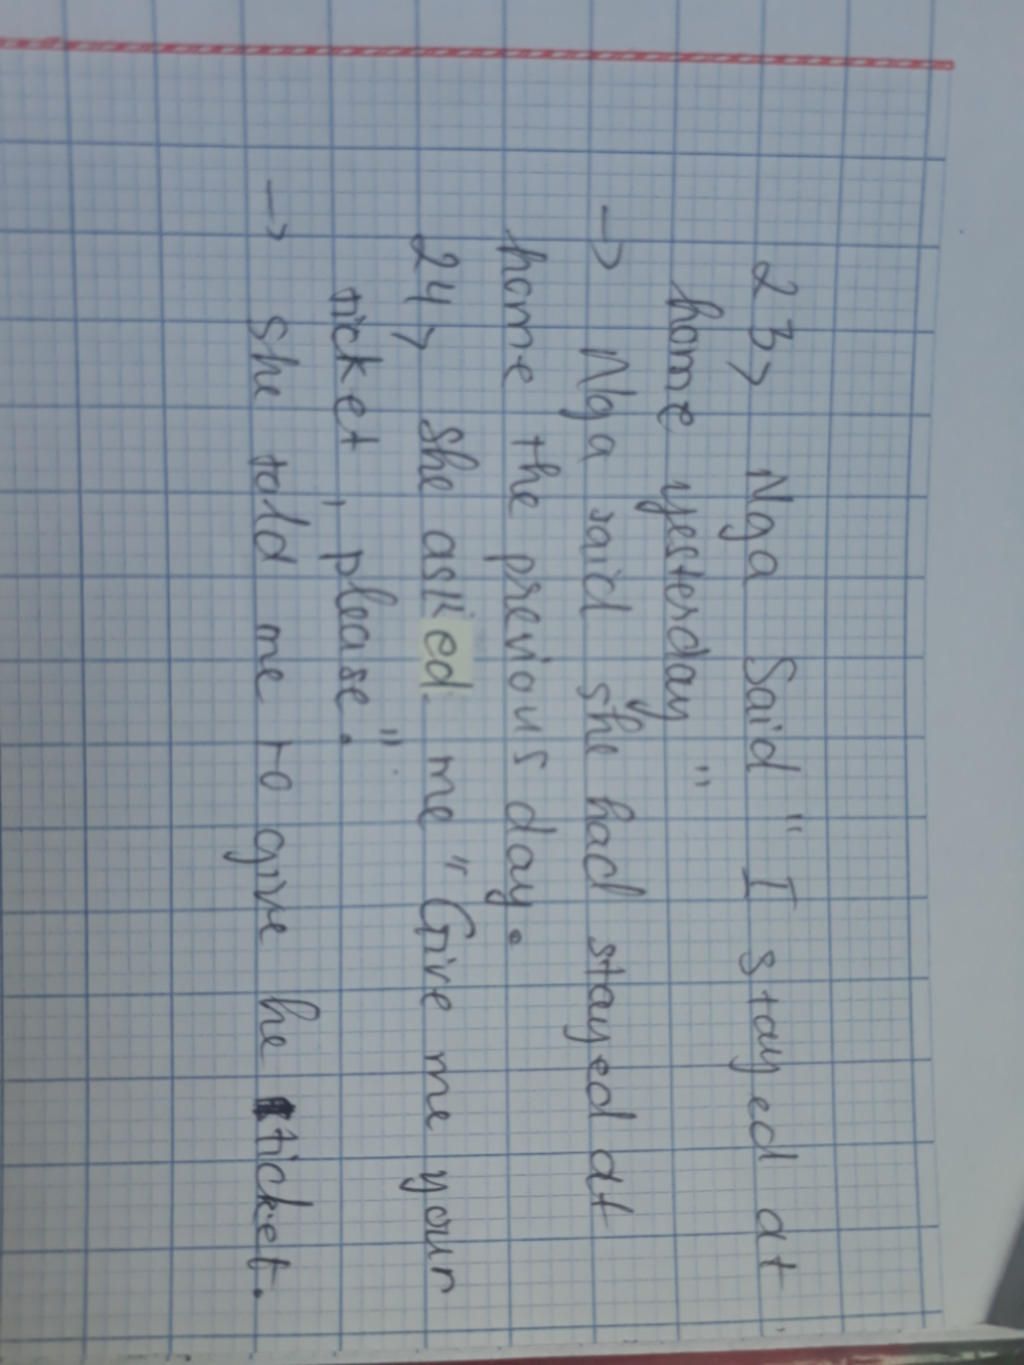 23> Nga Said " I stayed at
home yesterday "
→ Nga said she had stayed at
home the previous day.
24> She asked me " Give me your
ticket , please ".
→ She told me to give he ticket.